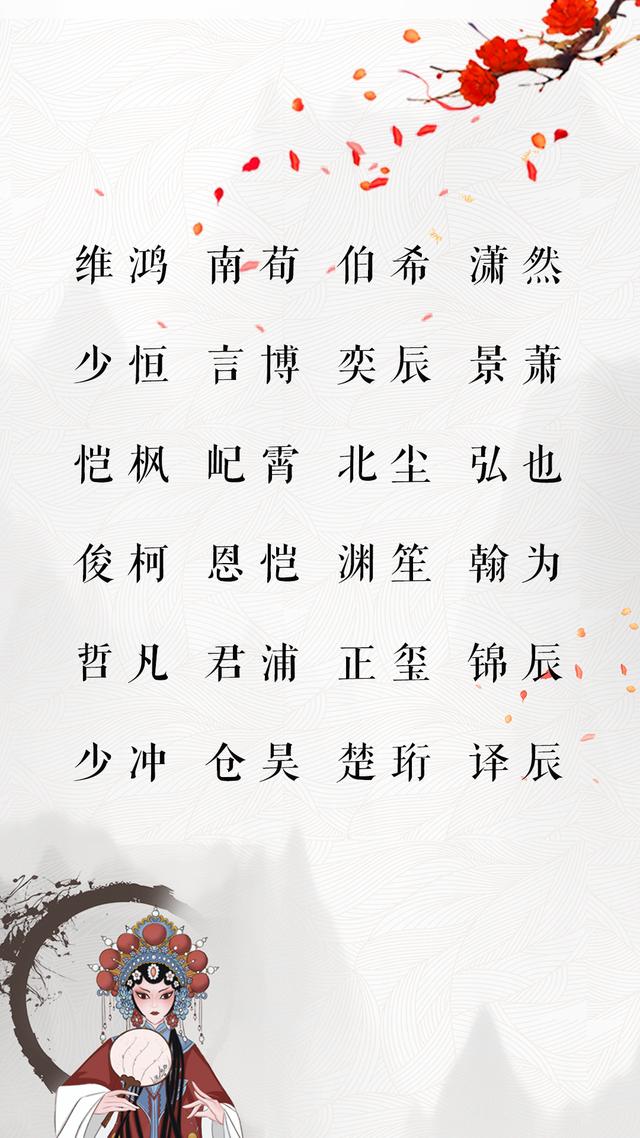 维鸿 南荀 伯希 潇然
少恒 言博 奕辰 景萧
恺枫 屺霄 北尘 弘也
俊柯 恩恺 渊笙 翰为
哲凡 君浦 正玺 锦辰
少冲 仓昊 楚珩 译辰